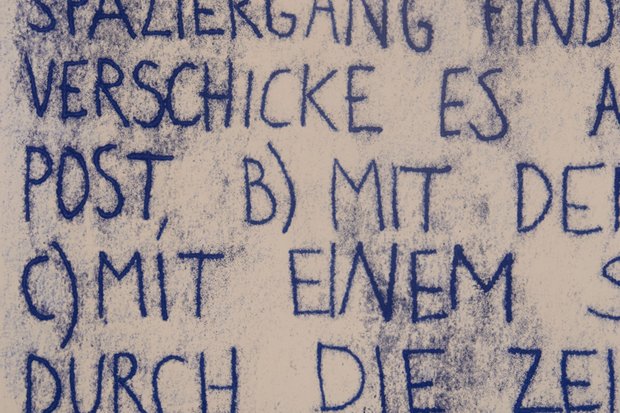 SPAZIERGANG FIND
VERSCHICKE ES A
POST, B) MIT DE
C) MIT EINEM S
DURCH DIE ZEI